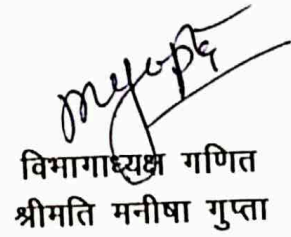 विभागाध्यक्ष गणित
श्रीमति मनीषा गुप्ता